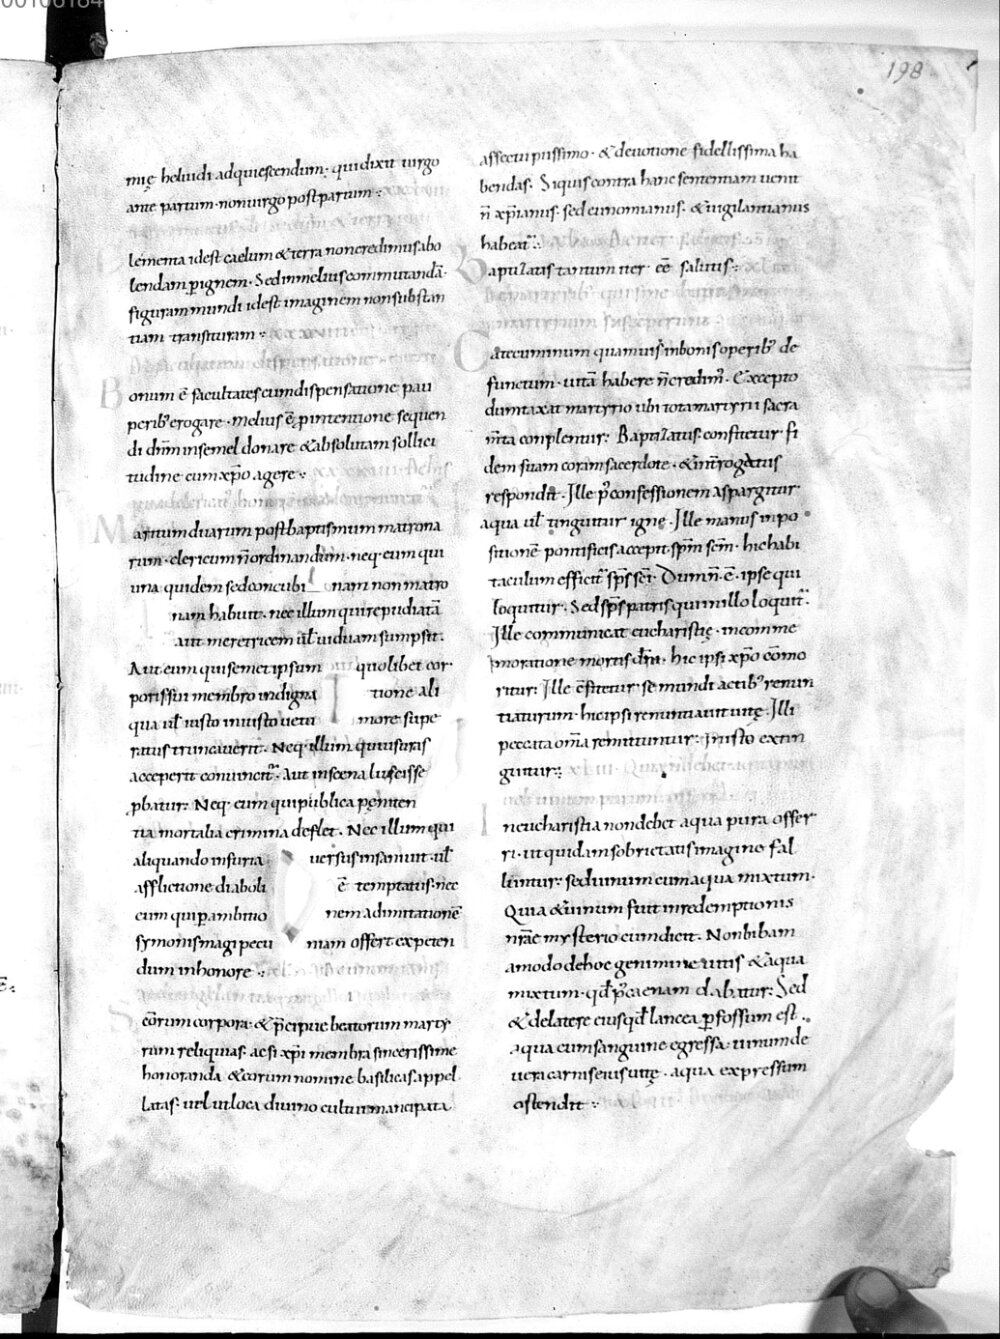 00106184
198
mię heluidi adquiescendum; qui dixit uirgo
ante partum. non uirgo post partum;
lementa idest caelum & terra non credimus abo
lendam p ignem. Sed in melius commutandā.
figuram mundi idest imaginem non substan
tiam transituram;
Bonum ē facultates cum dispensatione pau
perib; erogare. Melius ē p intentione sequen
di dn̄m in semel donare & absolutam sollici
tudine cum xp̄o agere;
Maritum duarum post baptismum matrona
rum. clericum n̄ ordinandum. neq; eum qui
una quidem sed concubinam non matro
nam habuit. nec illum qui repudiatā
aut meretricem ul̄ uiduam sumpsit.
Aut eum qui semet ipsum quolibet cor
poris sui membro indignatione ali
qua ul̄ iusto iniusto ue timore supe
ratus truncauerit. Neq; illum qui usuras
accepert conuincit͛. Aut in scena lusisse
pbatur; Neq; eum qui publica peniten
tia mortalia crimina deflet. Nec illum qui
aliquando in furia uersus insaniuit. ul̄
afflictione diaboli ē temptatus. nec
eum qui p ambitionem ad imitationē
symonis magi pecuniam offert expeten
dum in honore;
Scōrum corpora. & p̄cipue beatorum marty
rum reliquias. ac si xp̄i membra sincerissime
honoranda & eorum nomine basilicas appel
latas. uel ut loca diuino cultui mancipata
affectu piissimo. & deuotione fidellissima ha
bendas. Si quis contra hanc sententiam uenit
n̄ xp̄ianus. sed eunomianus. & uigilantianus
habeat͛;
Bapuzatis tantum iter. eē salutis;
Catecuminum quamuis in bonis operib; de
functum. uitā habere n̄ credim;. Excepto
dumtaxat martyrio ubi tota martyrii sacra
m̄ta conplentur; Baptizatus confitetur fi
dem suam coram sacerdote. & int̄rogatus
respondit. Ille p̄ confessionem aspargitur
aqua ul̄ tinguitur igne. Ille manus inpo
sitionē pontificis accepit. sp̄m scm̄. hic habi
taculum efficit͛ sp̄s sc̄i. Dum n̄. ē. ipse qui
loquitur. Sed sp̄s patris qui in illo loquit͛.
Ille communicat eucharistię. in comme
moratione mortis dn̄i. hic ipsi xp̄o cōmo
ritur; Ille cf̄itetur se mundi actib; renun
tiaturum. hic ipsi renuntiauit uitę. Illi
peccata om̄a remittuntur; In isto extin
guntur;
In eucharistia non debet aqua pura offer
ri. ut quidam sobrietatis imagine fal
luntur; sed uinum cum aqua mixtum.
Quia & uinum fuit in redemptionis
n̄rae mysterio cum dicit. Non bibam
amodo de hoc genimine uitis & aqua
mixtum. qd̄ p̄ caenam dabatur; Sed
& de latere eius qd̄ lancea p fossum est.
aqua cum sanguine egressa. uinum de
uera carnis eius uite. aqua expressum
ostendit;